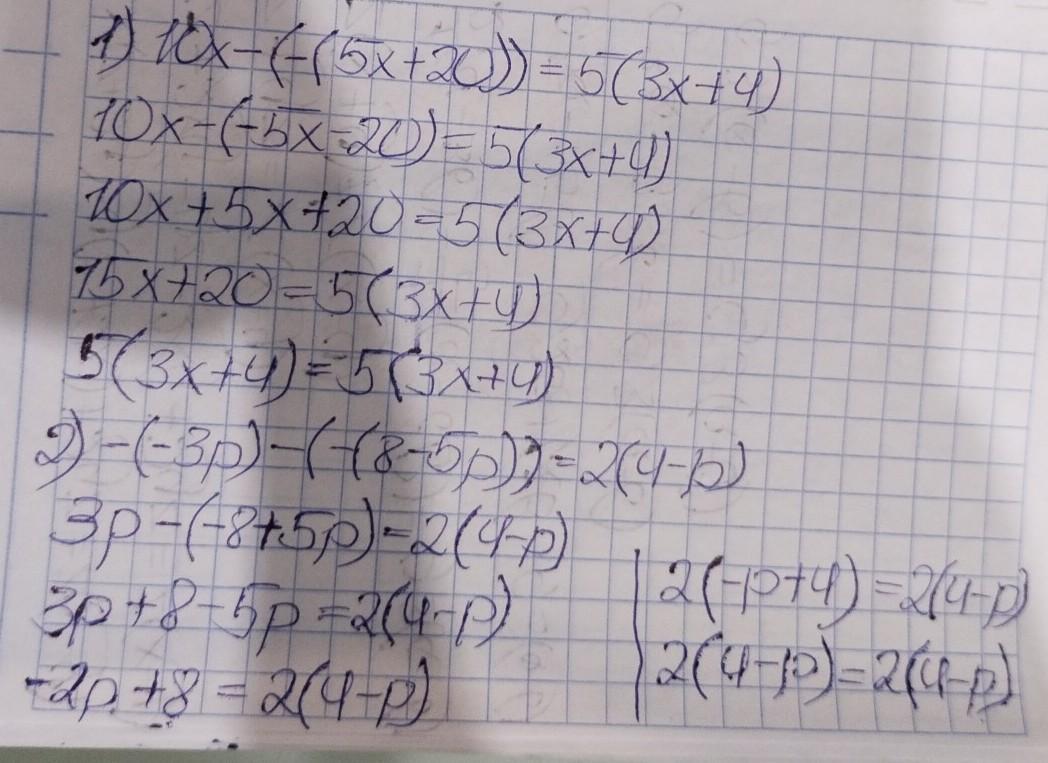 1) 10x-(-(5x+20))=5(3x+4)
10x-(-5x-20)=5(3x+4)
10x+5x+20=5(3x+4)
15x+20=5(3x+4)
5(3x+4)=5(3x+4)
2) -(-3p)-(-(8-5p))=2(4-p)
3p-(-8+5p)=2(4-p)
3p+8-5p=2(4-p)
-2p+8=2(4-p)
2(-p+4)=2(4-p)
2(4-p)=2(4-p)